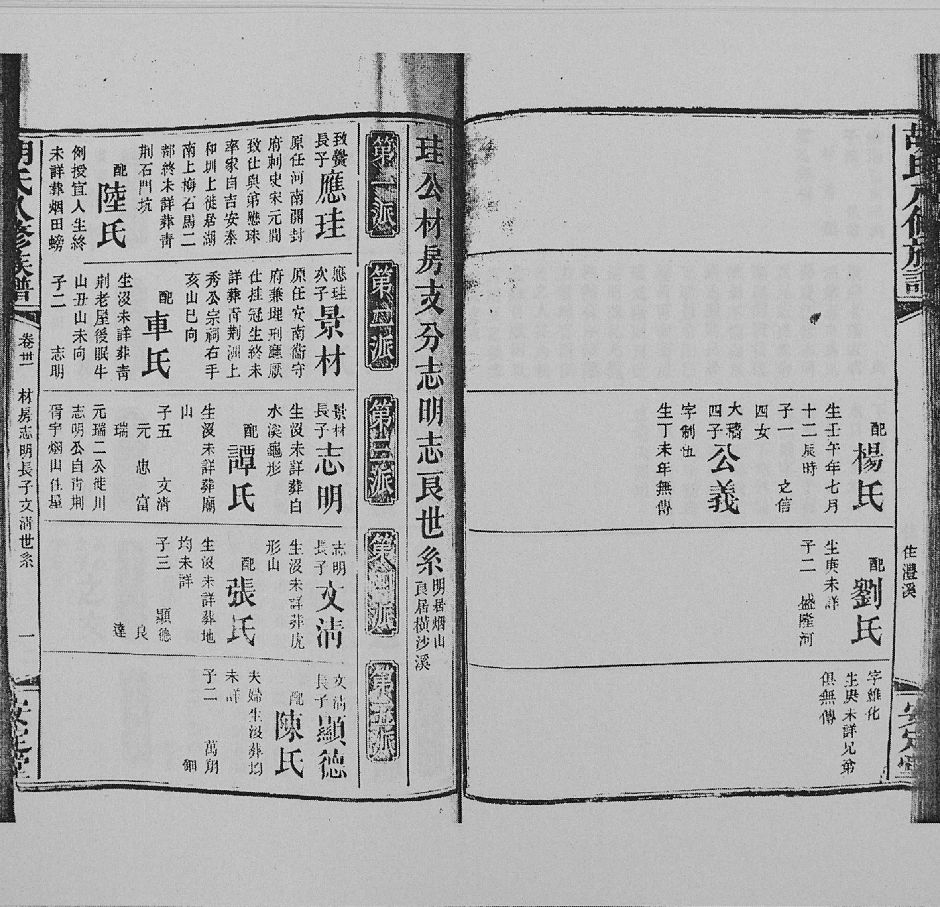 胡氏八修族譜
安定堂
住澧溪
配楊氏
生壬午年七月
十二辰時
子一 之信
四女
大積四子公義
字制伍
生丁未年無傳
配劉氏
生庚未詳
子二 盛隆河
字雅化
生庚未詳兄弟
俱無傳
珪公材房支分志明志良世系
明居烟山
良居橫沙溪
第一派
第二派
第三派
第四派
第五派
致爨長子應珪
原任河南開封
府刺史宋元間
致仕與弟應珠
率家自吉安泰
和圳上徙居湖
南上梅石馬二
都終未詳葬青
荆石門坑
配陸氏
例授宜人生終
未詳葬烟田螃
應珪次子景材
原任安南衛守
府兼理刑廳厥
仕挂冠生終未
詳葬青荆洲上
秀公宗祠右手
亥山巳向
配車氏
生沒未詳葬青
荆老屋後眠牛
山丑山未向
子二 志明
景材長子志明
生沒未詳葬白
水溪龜形
配譚氏
生沒未詳葬廟
山
子五 文清
元 忠 富
瑞
元瑞二公徙川
志明公自青荆
胥宇烟山住屋
志明長子文清
生沒未詳葬虎
形山
配張氏
生沒未詳葬地
均未詳
子三 顯德
良
達
文清長子顯德
配陳氏
夫婦生沒葬均
未詳
子二 萬朔
鈿
胡氏八修族譜
卷廿一 材房志明長子文清世系
一
安定堂